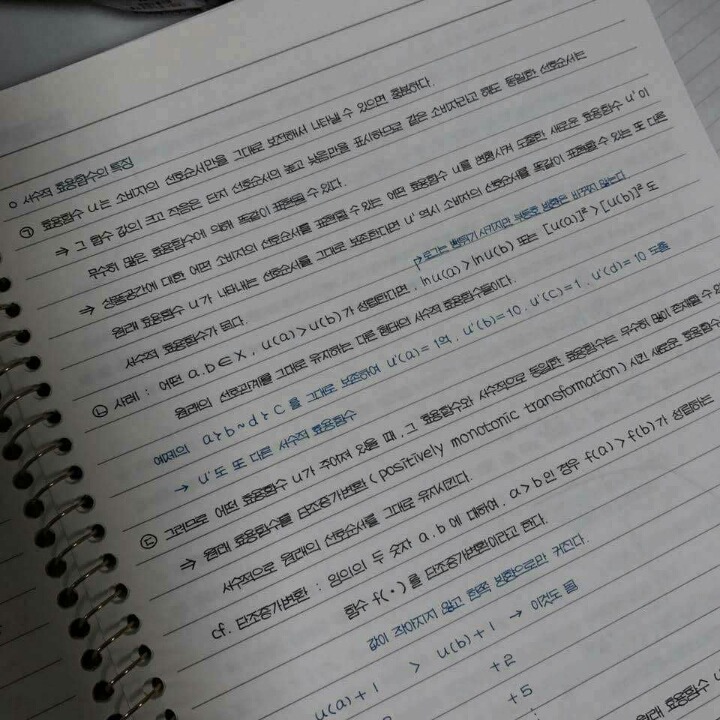 o 서수적 효용함수의 특징
㉠ 효용함수 u는 소비자의 선호순서만을 그대로 보전해서 나타낼 수 있으면 충분하다.
⇒ 그 함수 값의 크고 작음은 단지 선호순서의 높고 낮음만을 표시하므로 같은 소비자라고 해도 동일한 선호순서는
무수히 많은 효용함수에 의해 똑같이 표현될 수 있다.
⇒ 상품공간에 대한 어떤 소비자의 선호순서를 표현할 수 있는 어떤 효용함수 u를 변형시켜 도출한 새로운 효용함수 u'이
원래 효용함수 u가 나타내는 선호순서를 그대로 보존한다면 u' 역시 소비자의 선호순서를 똑같이 표현할 수 있는 또 다른
서수적 효용함수가 된다.
로그는 변화시키지만 부등호 방향은 바꾸지 않는다
㉡ 사례 : 어떤 a.b∈X, u(a)>u(b)가 성립한다면, lnu(a)>lnu(b) 또는 [u(a)]²>[u(b)]²도
원래의 선호관계를 그대로 유지하는 다른 형태의 서수적 효용함수들이다.
예제의 a≻b~d≻c를 그대로 보존하여 u'(a)=19, u'(b)=10, u'(c)=1, u'(d)=10 도출
→ u'도 또 다른 서수적 효용함수
㉢ 그러므로 어떤 효용함수 u가 주어져 있을 때, 그 효용함수와 서수적으로 동일한 효용함수는 무수히 많이 존재할 수
⇒ 원래 효용함수를 단조증가변환(positively monotonic transformation)시킨 새로운 효용함수
서수적으로 원래의 선호순서를 그대로 유지시킨다.
cf. 단조증가변환 : 임의의 두 숫자 a.b에 대하여, a>b인 경우 f(a)>f(b)가 성립하는
함수 f(·)를 단조증가변환이라고 한다.
값이 작아지지 않고 한쪽 방향으로만 커진다.
u(a)+1 > u(b)+1 → 이것도 됨
+2
+5
원래 효용함수